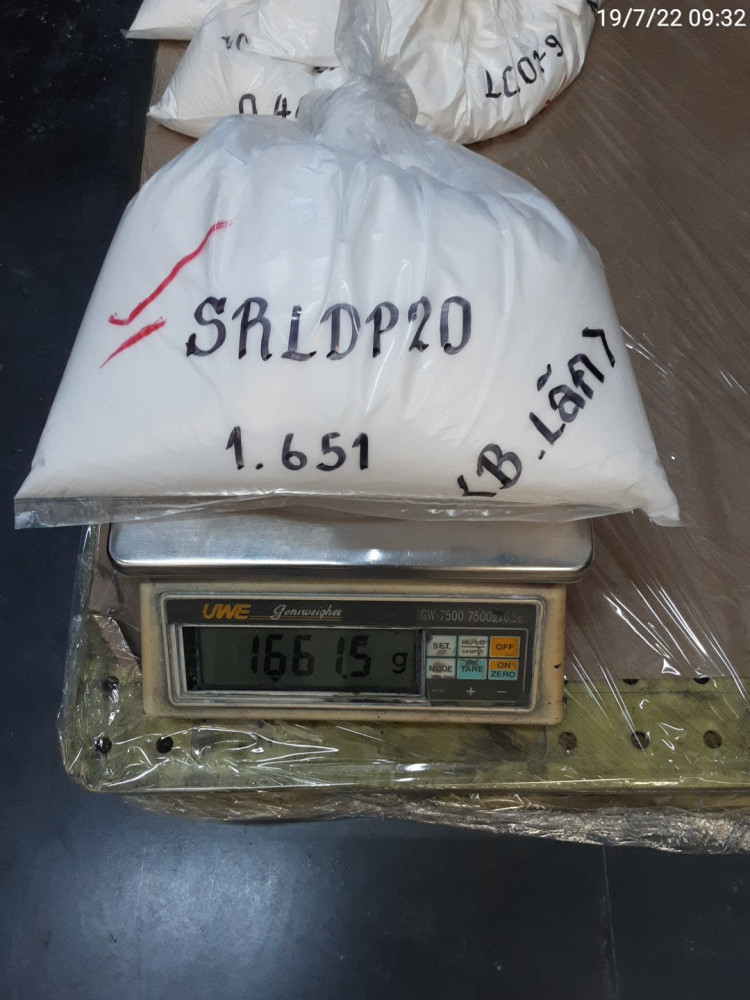 19/7/22 09:32
LC01-9
0.4
SRLDP20
1.651
(B.Lãn)
UWE Geniweigher GW-7500 7500gx0.5g
1661.5 g
SET
SAMPLE
OFF
MODE
TARE
ON
ZERO
+
−